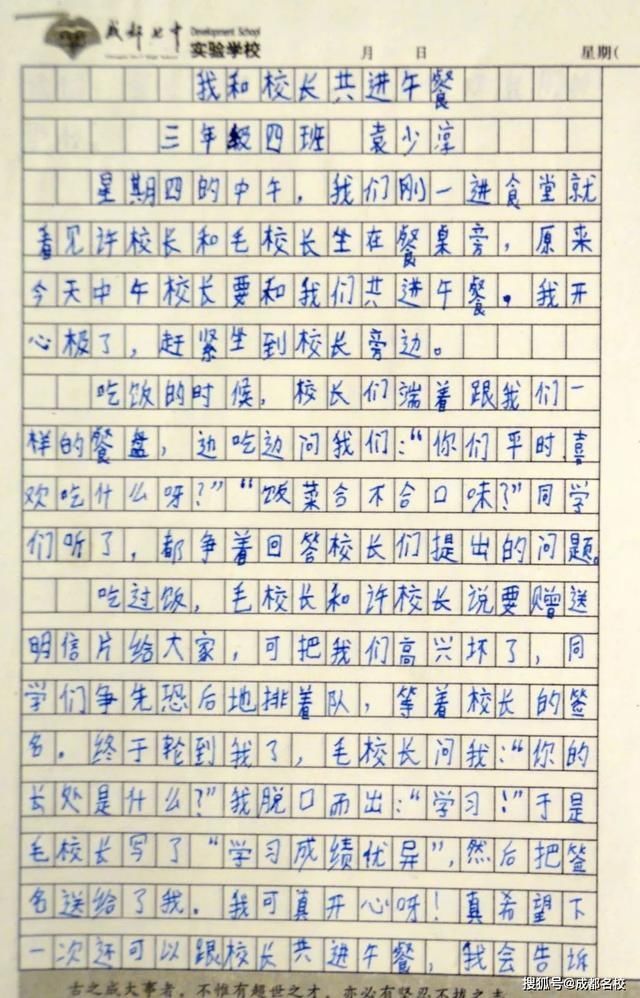 成都七中 Development School
实验学校 月 日 星期(
我和校长共进午餐
三年级四班 袁少淳
星期四的中午，我们刚一进食堂就
看见许校长和毛校长坐在餐桌旁，原来
今天中午校长要和我们共进午餐。我开
心极了，赶紧坐到校长旁边。
吃饭的时候，校长们端着跟我们一
样的餐盘，边吃边问我们：“你们平时喜
欢吃什么呀？”“饭菜合不合口味？”同学
们听了，都争着回答校长们提出的问题。
吃过饭，毛校长和许校长说要赠送
明信片给大家，可把我们高兴坏了，同
学们争先恐后地排着队，等着校长的签
名。终于轮到我了，毛校长问我：“你的
长处是什么？”我脱口而出：“学习！”于是
毛校长写了“学习成绩优异”，然后把签
名送给了我。我可真开心呀！真希望下
一次还可以跟校长共进午餐，我会告诉
古之成大事者，不惟有超世之才，亦必有坚忍不拔之志
搜狐号@成都名校